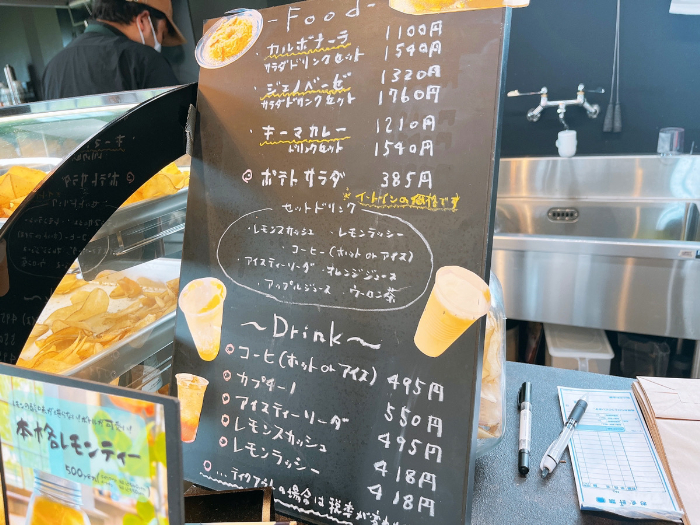 -Food-
・カルボナーラ 1100円
サラダドリンクセット 1540円
・ジェノベーゼ 1320円
サラダドリンクセット 1760円
・キーマカレー 1210円
ドリンクセット 1540円
◎ポテトサラダ 385円
※イートインの価格です
セットドリンク
・レモンスカッシュ ・レモンラッシー
・コーヒー(ホット or アイス)
・アイスティーリーダ ・オレンジジュース
・アップルジュース ・ウーロン茶
〜Drink〜
◎コーヒ(ホット or アイス) 495円
◎カプチーノ 550円
◎アイスティーリーダ 495円
◎レモンスカッシュ 418円
◎レモンラッシー 418円
◎...テイクアウトの場合は税率が
本格レモンティー
500